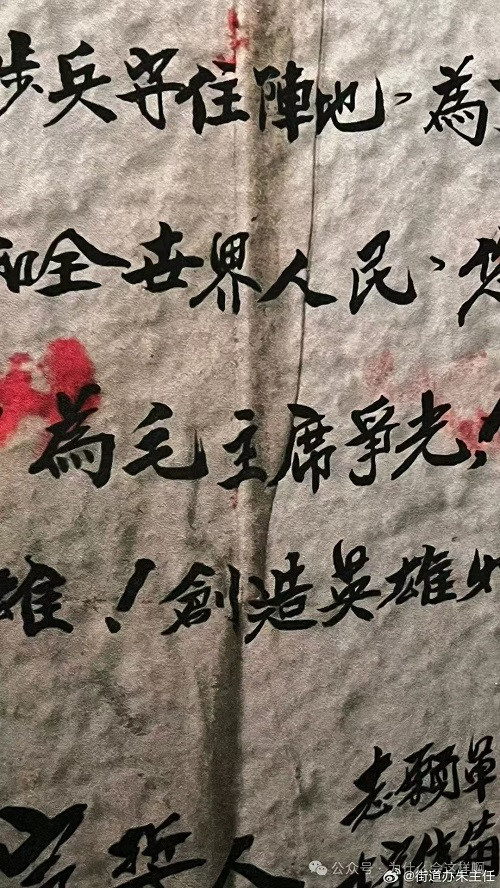 步兵守住陣地、為
和全世界人民、您
為毛主席爭光！
雄！創造英雄
志願軍
人
公众号·为什么会这样啊
@街道办朱主任